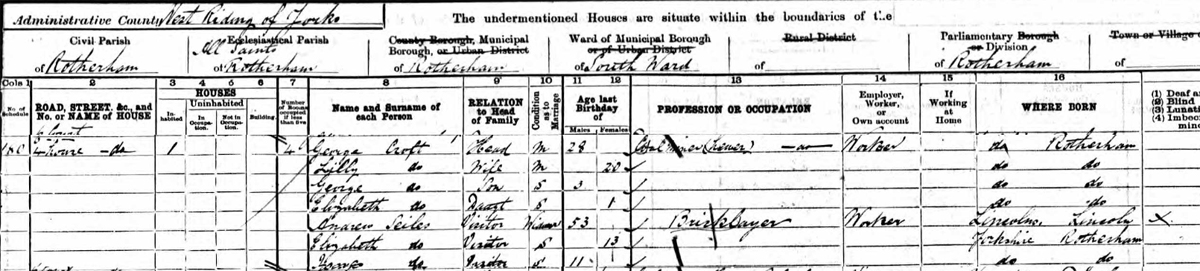 Administrative County West Riding of Yorks The undermentioned Houses are situate within the boundaries of the
Civil Parish Ecclesiastical Parish County Borough, Municipal Borough, or Urban District Ward of Municipal Borough or of Urban District Rural District Parliamentary Borough or Division Town or Village
of Rotherham All Saints of Rotherham of Rotherham of South Ward of of Rotherham of
Cols 1 2 3 4 5 6 7 8 9 10 11 12 13 14 15 16
No. of Schedule ROAD, STREET, &c., and No. or NAME of HOUSE HOUSES Inhabited Uninhabited In Occupation. Not in Occupation. Building. Number of Rooms occupied if less than five Name and Surname of each Person RELATION to Head of Family Condition as to Marriage Age last Birthday of Males Females PROFESSION OR OCCUPATION Employer, Worker, or Own account If Working at Home WHERE BORN
(1) Deaf
(2) Blind
(3) Lunati
(4) Imbec
mind
180 4 house do 1 4 George Croft Head M 28 Coal Miner (Hewer) Worker do Rotherham
Lilly do Wife M 20 do do
George do Son S 3 do do
Elizabeth do Daugt S 1 do do
Andrew Seiles Visitor Widower 53 Bricklayer Worker Lincolns. Lincoln
Elizabeth do Visitor S 13 Yorkshire Rotherham
do Visitor S 11 do do